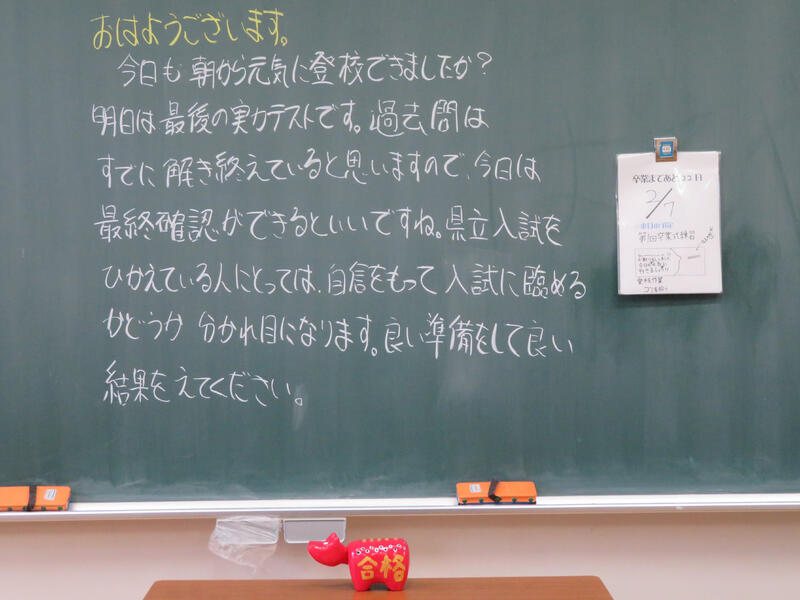 おはようございます。
今日も朝から元気に登校できましたか?
明日は最後の実力テストです。過去問は
すでに解き終えていると思いますので、今日は
最終確認ができるといいですね。県立入試を
ひかえている人にとっては、自信をもって入試に臨める
かどうか分かれ目になります。良い準備をして良い
結果をえてください。
卒業まであと22日
2/7
第1回卒業式練習
合格